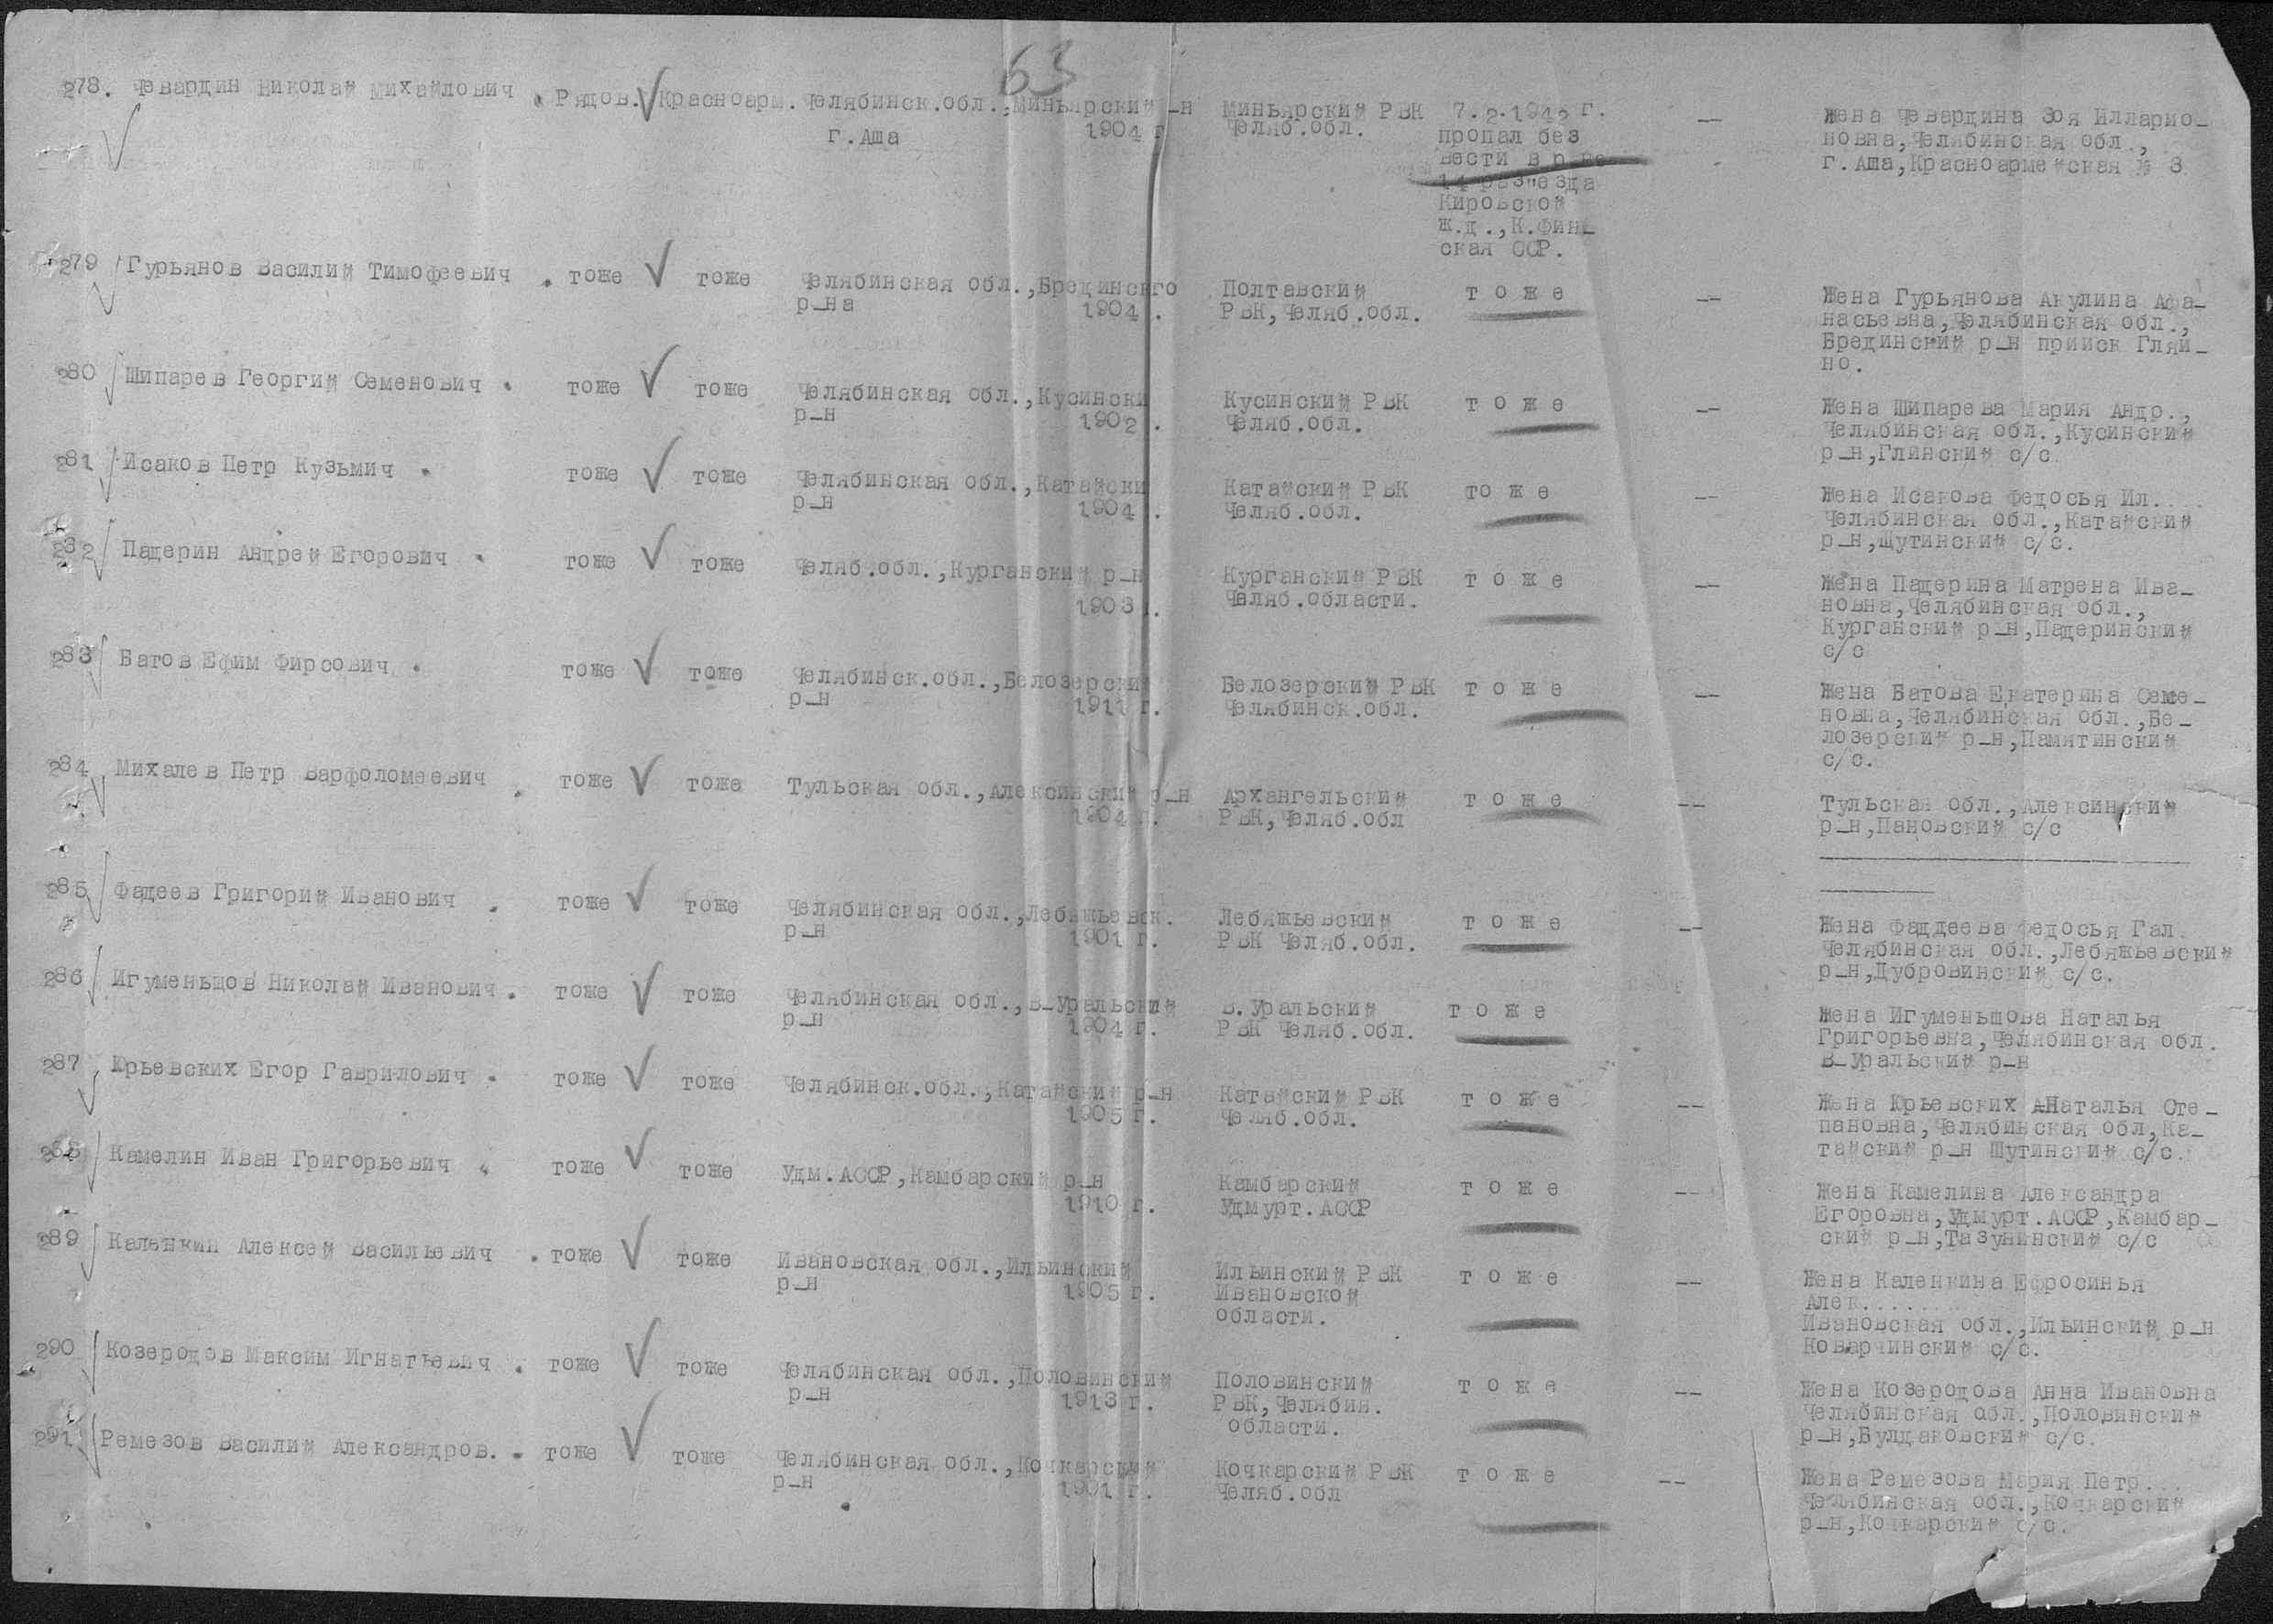 63
278. Чевардин Николай Михайлович . Рядов. Красноарм. Челябинск.обл.,Миньярский р-н Миньярский РВК 7.2.1942 г. -- Жена Чевардина Зоя Илларио-
г.Аша 1904 г Челяб.обл. пропал без новна,Челябинская обл.,
вести в р-не г.Аша,Красноармейская № 3
14 раз"езда
Кировской
ж.д.,К.Фин-
ская ССР.
279 Гурьянов Василий Тимофеевич . тоже тоже Челябинская обл.,Брединского Полтавский тоже -- Жена Гурьянова Акулина Афа-
р-на 1904 . РВК,Челяб.обл. насьевна,Челябинская обл.,
Брединский р-н прииск Гляй-
но.
280 Шипарев Георгий Семенович . тоже тоже Челябинская обл.,Кусински Кусинский РВК тоже -- Жена Шипарева Мария Андр.,
р-н 1902 . Челяб.обл. Челябинская обл.,Кусинский
р-н,Глинский с/с.
281 Исаков Петр Кузьмич . тоже тоже Челябинская обл.,Катайски Катайский РВК тоже -- Жена Исакова Федосья Ил....
р-н 1904 . Челяб.обл. Челябинская обл.,Катайский
р-н,Шутинский с/с.
282 Падерин Андрей Егорович . тоже тоже Челяб.обл.,Курганский р-н Курганский РВК тоже -- Жена Падерина Матрена Ива-
1903 г. Челяб.области. новна,Челябинская обл.,
Курганский р-н,Падеринский
с/с
283 Батов Ефим Фирсович . тоже тоже Челябинск.обл.,Белозерский Белозерский РВК тоже -- Жена Батова Екатерина Семе-
р-н 1911 г. Челябинск.обл. новна,Челябинская обл.,Бе-
лозерский р-н,Памятинский
с/с.
284 Михалев Петр Варфоломеевич . тоже тоже Тульская обл.,Алексинский р-н Архангельский тоже -- Тульская обл.,Алексинский
1904 г. РВК,Челяб.обл р-н,Пановский с/с
285 Фадеев Григорий Иванович . тоже тоже Челябинская обл.,Лебяжьевск. Лебяжьевский тоже -- Жена Фаддеева Федосья Гал.
р-н 1901 г. РВК Челяб.обл. Челябинская обл.,Лебяжьевский
р-н,Дубровинский с/с.
286 Игуменьшов Николай Иванович. тоже тоже Челябинская обл.,В-Уральский В.Уральский тоже Жена Игуменьшова Наталья
р-н 1904 г. РВК Челяб.обл. Григорьевна,Челябинская обл.
В-Уральский р-н
287 Юрьевских Егор Гаврилович . тоже тоже Челябинск.обл.,Катайский р-н Катайский РВК тоже -- Жена Юрьевских АНаталья Сте-
1905 г. Челяб.обл. пановна,Челябинская обл,Ка-
тайский р-н Шутинский с/с.
288 Камелин Иван Григорьевич . тоже тоже Удм.АССР,Камбарский р-н Камбарский тоже -- Жена Камелина Александра
1910 г. Удмурт.АССР Егоровна,Удмурт.АССР,Камбар-
ский р-н,Тазунинский с/с
289 Каленкин Алексей Васильевич . тоже тоже Ивановская обл.,Ильинский Ильинский РВК тоже -- Жена Каленкина Ефросинья
р-н 1905 г. Ивановской Алек.......
области. Ивановская обл.,Ильинский р-н
Коварчинский с/с.
290 Козеродов Максим Игнатьевич . тоже тоже Челябинская обл.,Половинский Половинский тоже -- Жена Козеродова Анна Ивановна
р-н 1913 г. РВК,Челябин. Челябинская обл.,Половинский
области. р-н,Булдаковский с/с.
291 Ремезов Василий Александров. . тоже тоже Челябинская обл.,Кочкарский Кочкарский РВК тоже -- Жена Ремезова Мария Петр...
р-н 1901 г. Челяб.обл Челябинская обл.,Кочкарский
р-н,Кочкарский с/с.